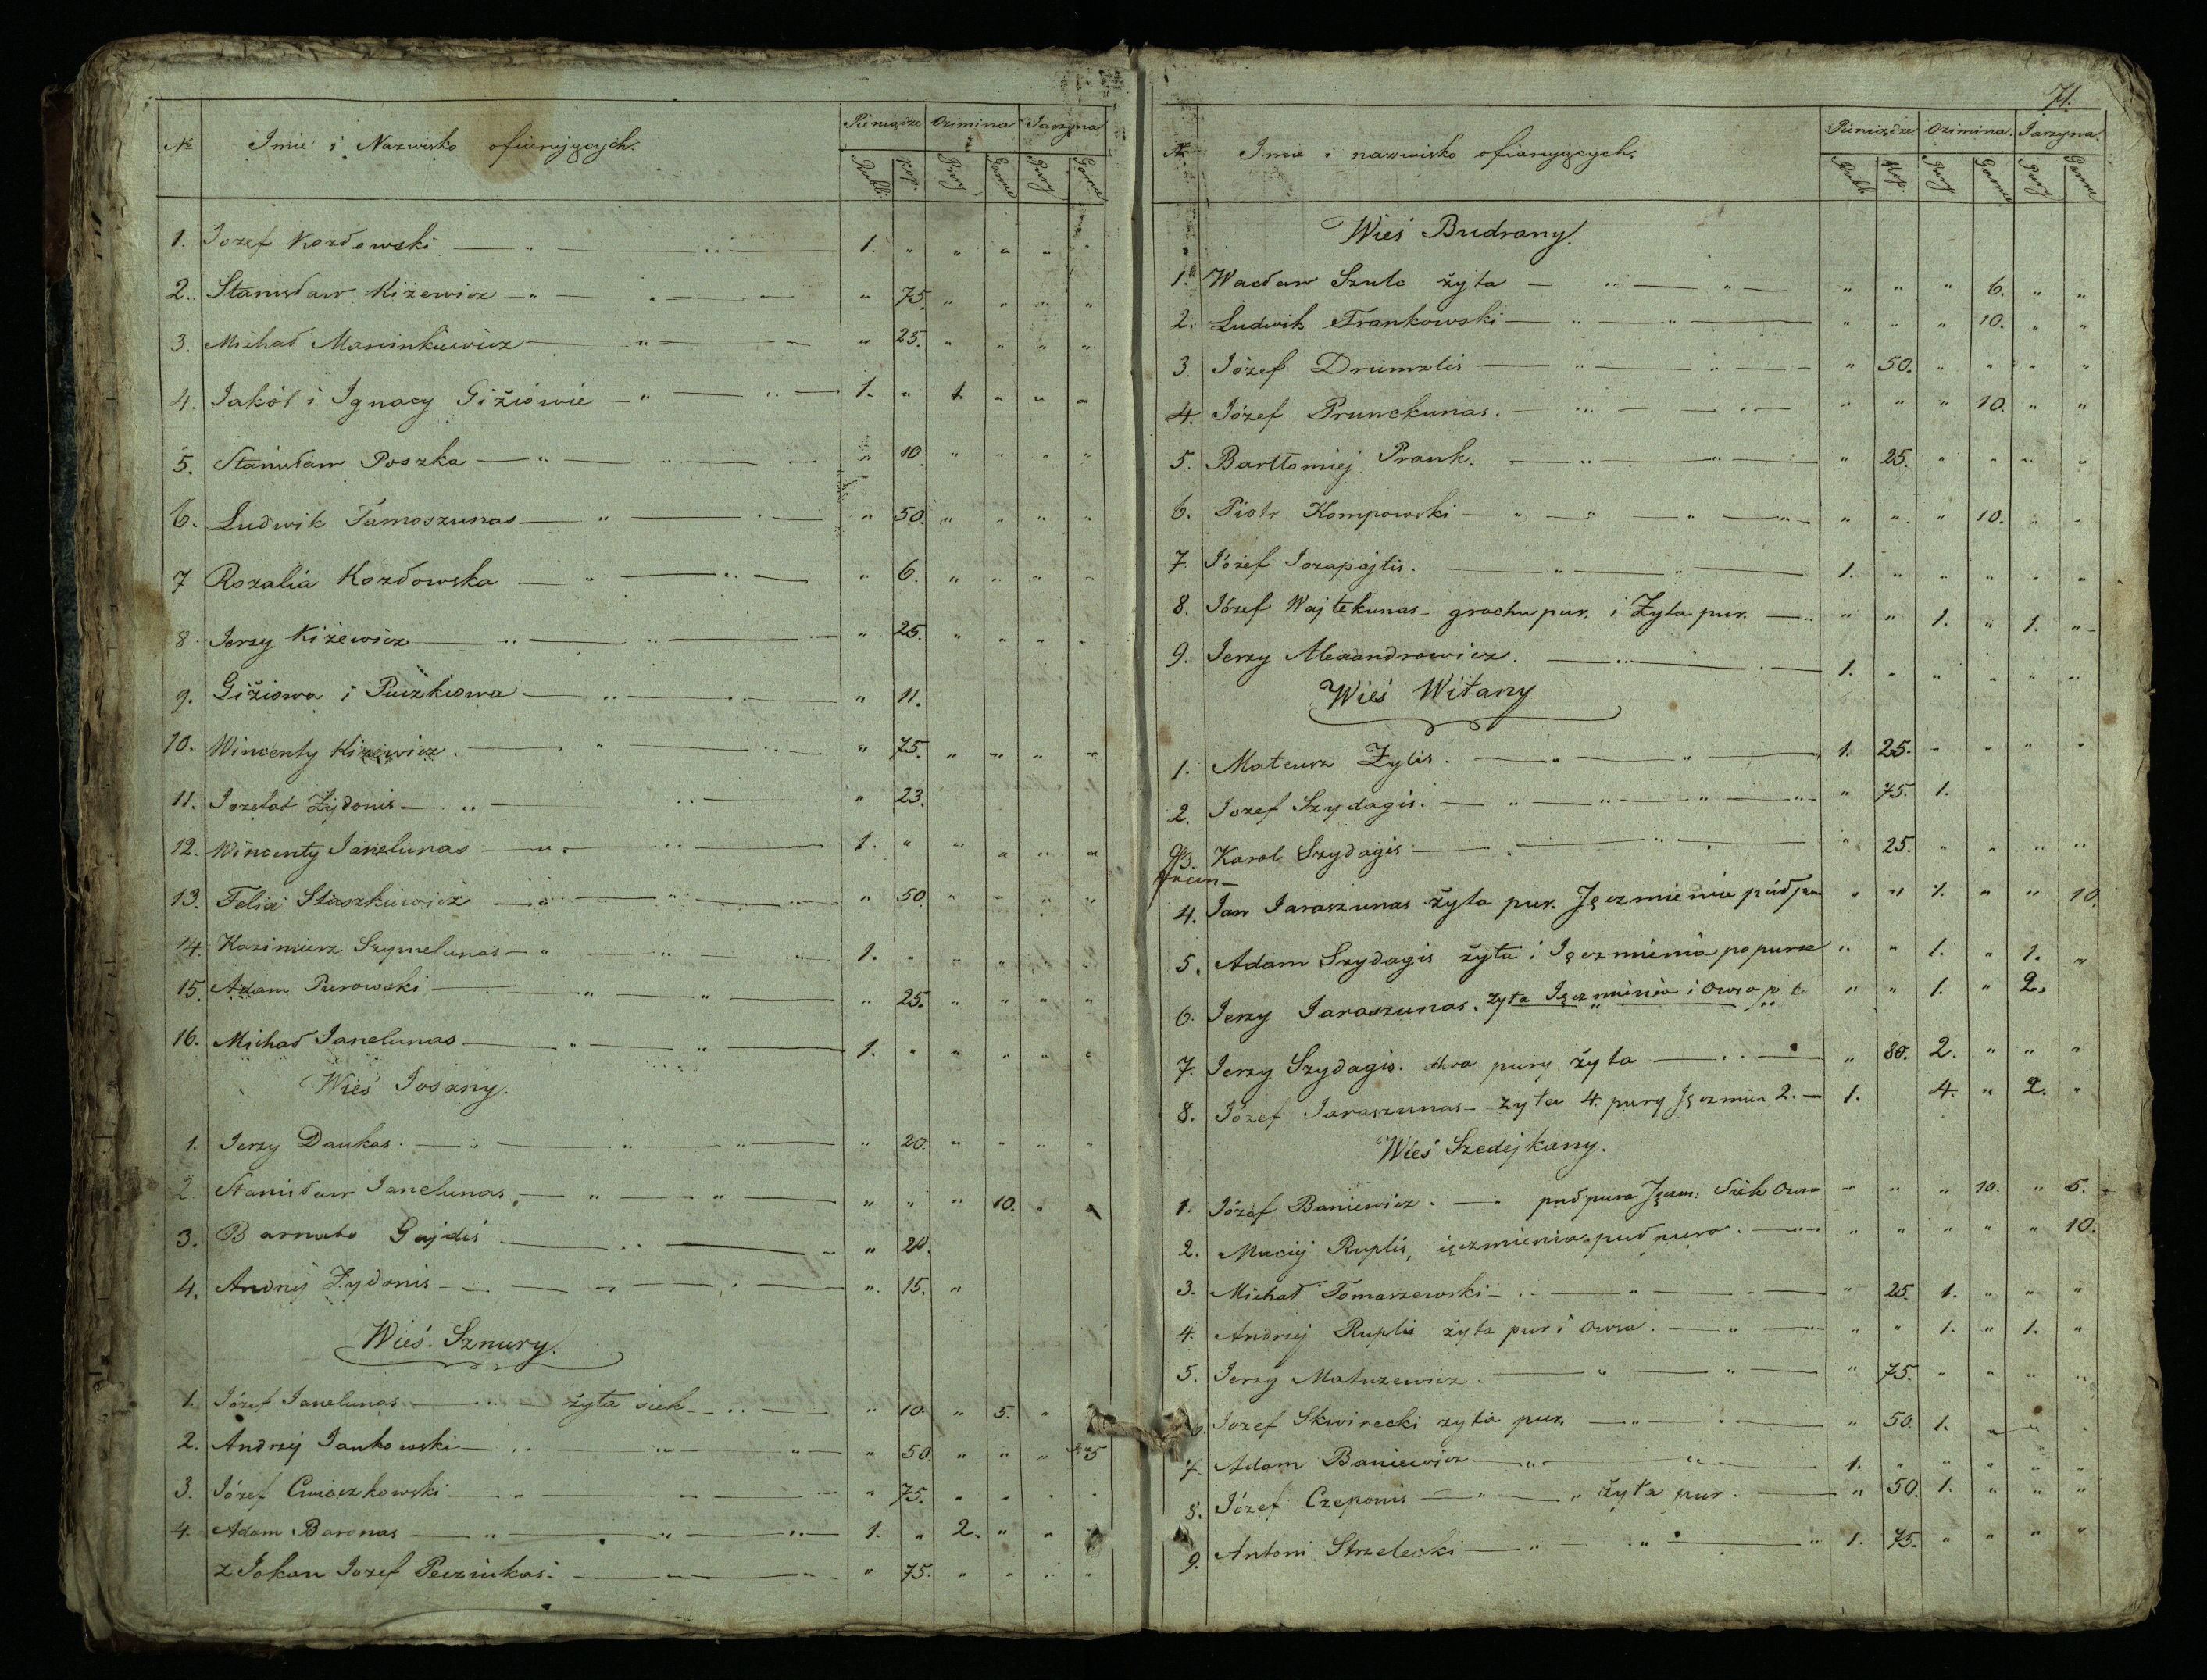 № Imie i Nazwisko ofiarujących. Pieniądze Ozimina Jarzyna
Rubli Kop. Pury Garnce Pury Garnce
1. Jozef Kozłowski — " — " — 1. " " " " "
2. Stanisław Kiżewicz — " — " — " 75. " " " "
3. Michał Marcinkiewicz — " — " 25. " " " "
4. Jakób i Ignacy Giżiowie — " — " — 1. " 1. " " "
5. Stanisław Poszka — " — " — " 10 " " " "
6. Ludwik Tamoszunas — " — " — " 50. " " " "
7 Rozalia Kozłowska — " — " — " 6. " " " "
8 Jerzy Kiżewicz — " — " — " 25. " " " "
9. Giżiowa i Puizkiowa — " — " — " 11.
10. Wincenty Kiżewicz. — " — " — " 75. " " " "
11. Jozefat Żydonis — " — " — " 23.
12. Wincenty Janelunas — " — " — 1. " " " " "
13. Felix Staszkiewicz — " — " — " 50. " " " "
14. Kazimierz Szymelunas — " — " — 1. " " " " "
15. Adam Purowski — " — " — " 25. " " " "
16. Michał Janelunas — " — " — 1. " " " " "
Wieś Josany.
1. Jerzy Daukas. — " — " — " 20. " " " "
2 Stanisław Janelunas, — " — " — " " " 10. " "
3. Barnato Gajdis — " — " 20.
4. Andrzej Żydonis — " — " — " 15. "
Wieś Sznury.
1. Józef Janelunas — żyta siek — " — " 10. " 5. " "
2. Andrzej Jankowski — " — " — " 50. " " " 5
3. Józef Cwiaczkowski — " — " — " 75. " " " "
4. Adam Baronas — " — " — 1. " 2. " " "
z Jokan Jozef Pecziukas. — " — " 75. " " " "
71.
№ Imie i nazwisko ofiarujących. Pieniądze Ozimina. Jarzyna.
Rubli Kop. Pury Garnce Pury Garnce
Wieś Budrany.
1. Wacław Szulc żyta — " — " — " " " 6. " "
2. Ludwik Frankowski — " — " — " " " 10. " "
3. Józef Drumzlis — " — " — " 50. " " " "
4. Józef Prunckunas. — " — " — " " " 10. " "
5. Bartłomiej Prank. — " — " — " 25. " " " "
6. Piotr Kompowski — " — " — " " " 10. " "
7. Józef Jozapajtis. — " — " — 1. " " " " "
8. Józef Wajtekunas — grochu pur. i Żyta pur. — " " " 1. " 1. "
9. Jerzy Alexandrowicz. — " — " — 1. " " " " "
Wieś Witany
1. Mateusz Żylis. — " — " — 1. 25. " " " "
2. Jozef Szydagis. — " — " — " — " 75. 1.
3. Karol Szydagis — " — " — " 25. " " " "
4. Jan Jaraszunas żyta pur. Jęczmienia púdpu " " 1. " " 10.
5. Adam Szydagis żyta i Jęczmienia po purze " " 1. " 1. "
6. Jerzy Jaraszunas. żyta Jęczmienia i Owsa " " 1. " 2.
7. Jerzy Szydagis. dwa pury żyta — " — " 80. 2. " " "
8. Józef Jaraszunas — żyta 4. pury Jęczmien 2. — 1. 4. " 2. "
Wieś Szedejkany.
1. Józef Baniewicz. — pud pura Jęczm: Siek Owsa " " " 10. " 5.
2. Maciej Ruplis, ięczmienia pud pura. — " " " " " 10.
3. Michał Tomaszewski — " — " — " 25. 1. " " "
4. Andrzej Ruplis żyta pur i Owsa. — " — " " 1. " 1. "
5. Jerzy Matuzewicz. — " — " — " 75. " " " "
6. Jozef Skwirecki żyta pur. — " — " — " 50. 1. " " "
7. Adam Baniewicz — " — " — 1. " " " " "
8. Józef Czeponis — " — " żyta pur. — " 50. 1. " " "
9. Antoni Strzelecki — " — " — " 1. 75. " " " "